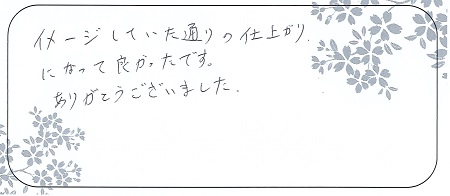 イメージしていた通りの仕上がり
になって良かったです。
ありがとうございました.